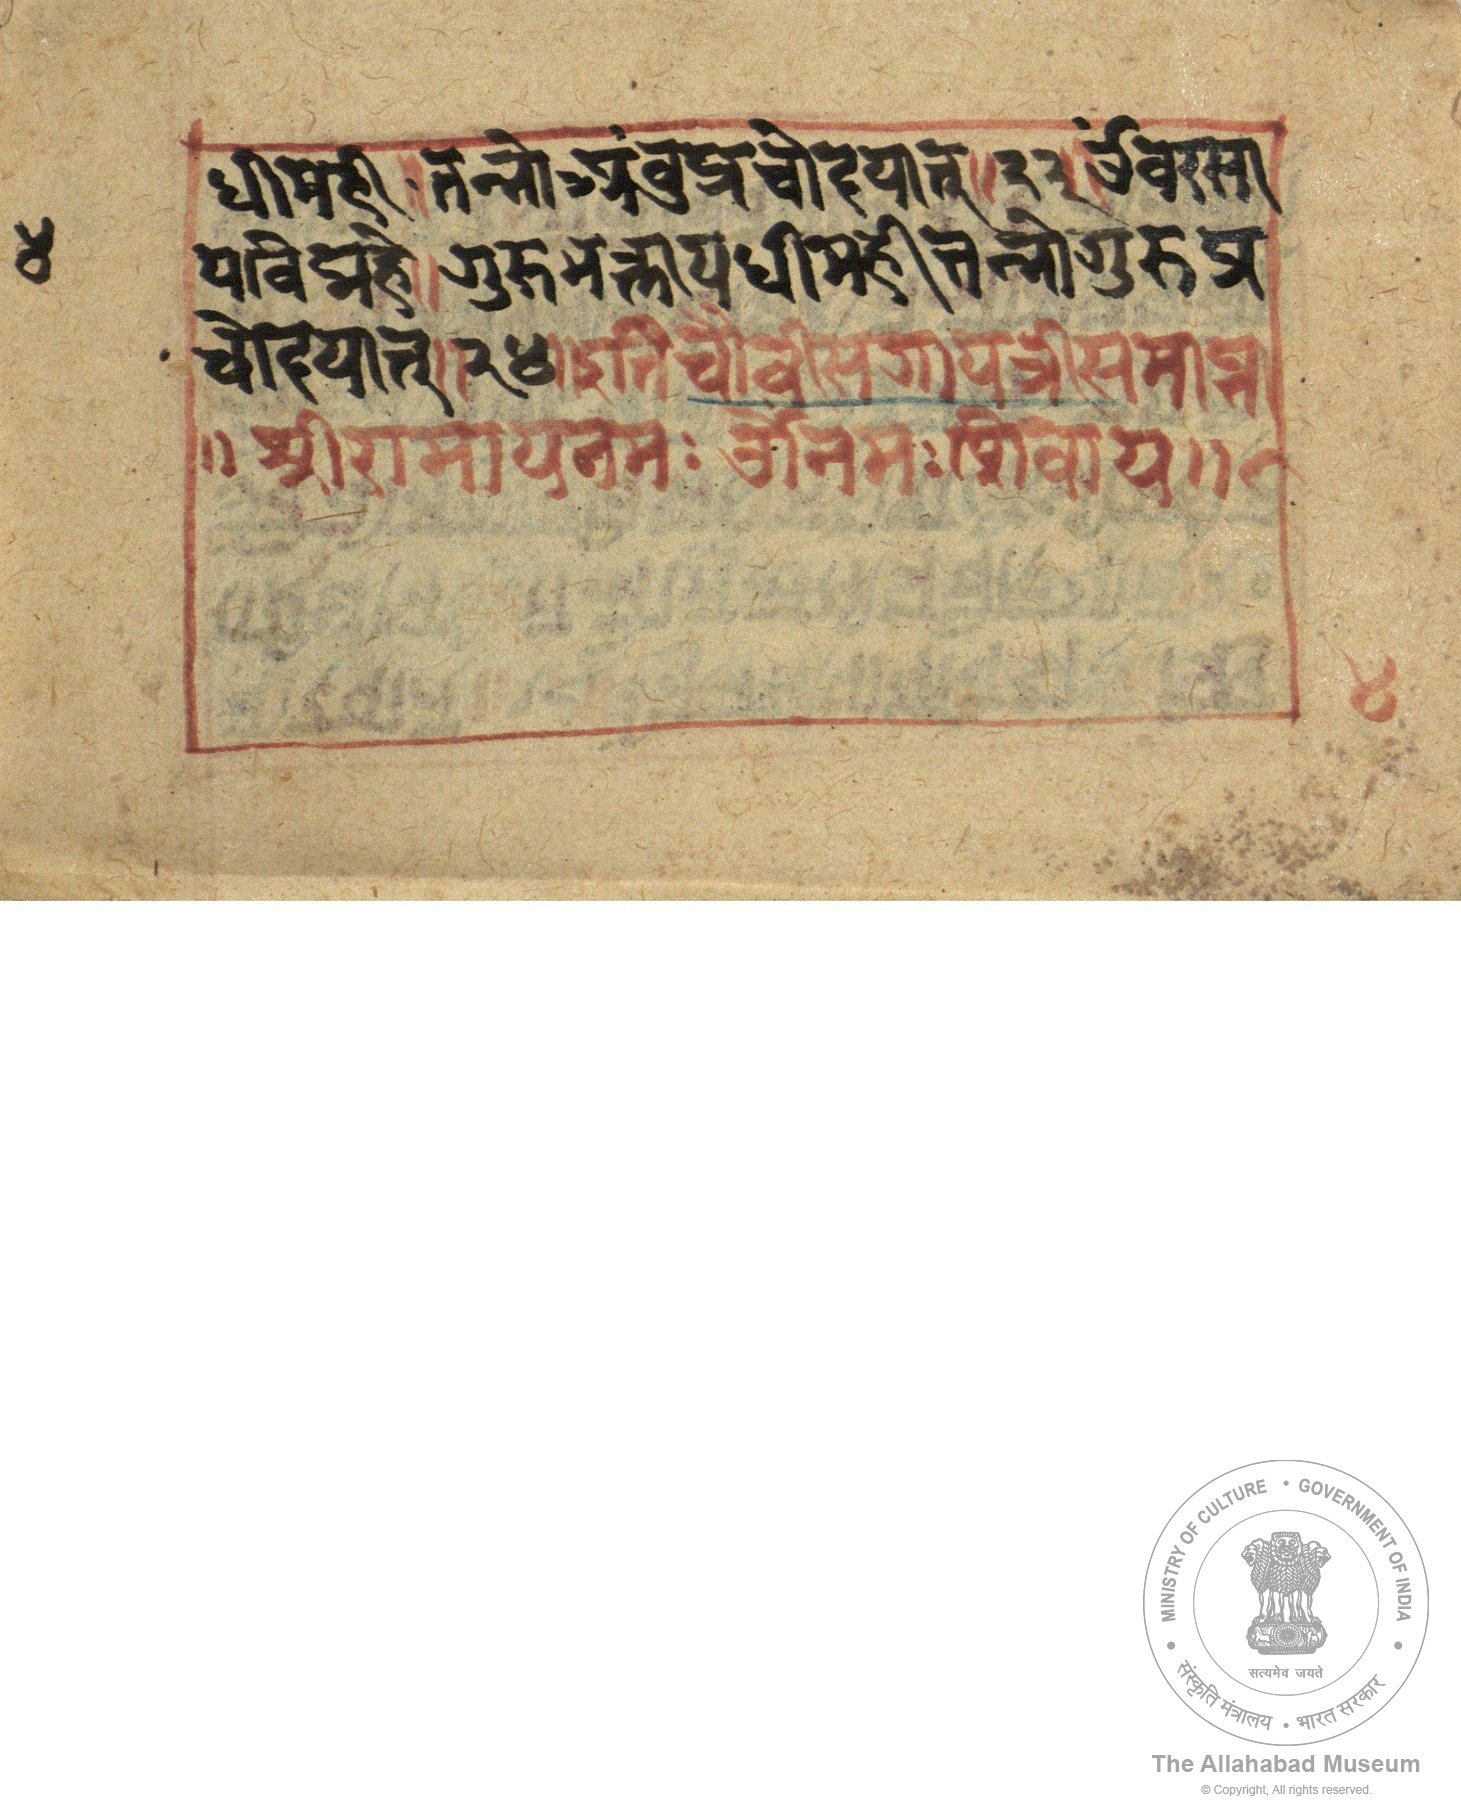 धीमही ॥ तन्नो अंबु प्रचोदयात् ॥ २३ ॥ ॐ वरसा
४
यविद्महे ॥ गुरुभक्ताय धीमही तन्नो गुरु प्र
चोदयात् ॥ २४ ॥ इति चौवीस गायत्री समाप्त
॥ श्रीरामाय नमः ॐ नमः शिवाय ॥
४
MINISTRY OF CULTURE • GOVERNMENT OF INDIA
सत्यमेव जयते
संस्कृति मंत्रालय • भारत सरकार
The Allahabad Museum
© Copyright, All rights reserved.